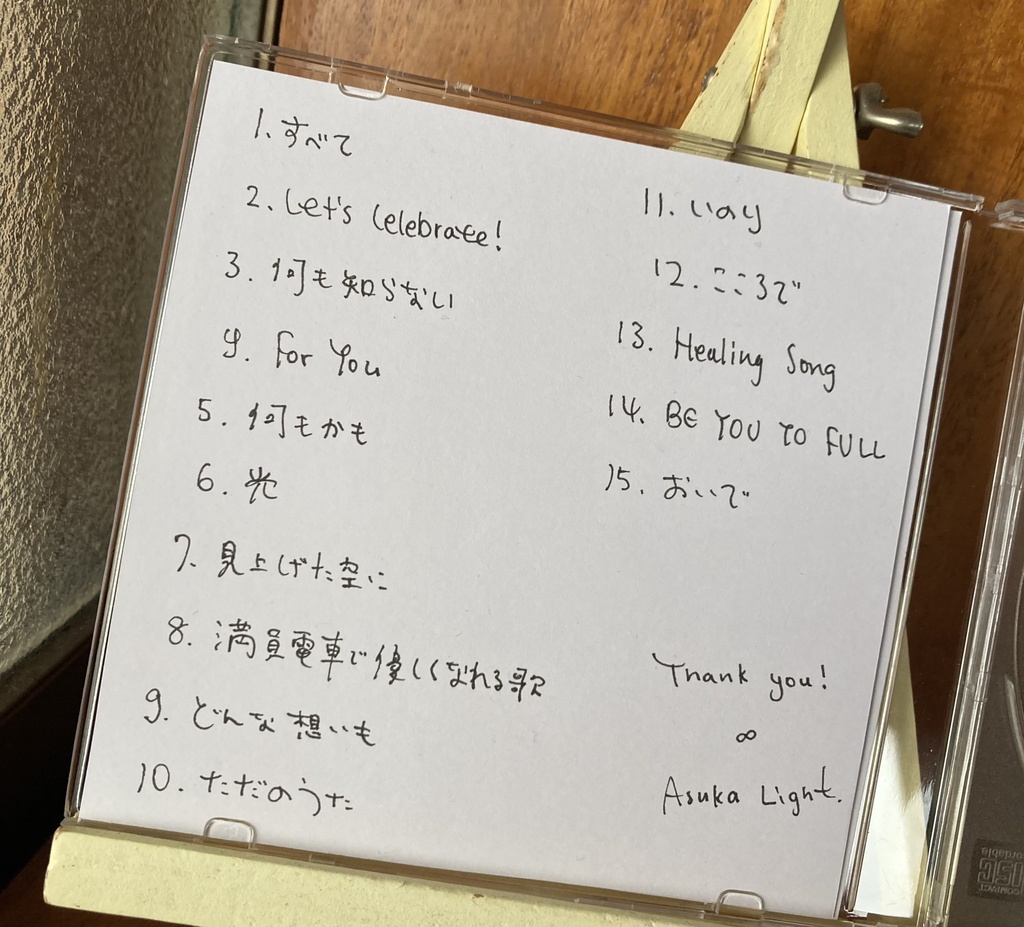 1. すべて
2. Let's Celebrate!
3. 何も知らない
4. For You
5. 何もかも
6. 光
7. 見上げた空に
8. 満員電車で優しくなれる歌
9. どんな想いも
10. ただのうた
11. いのり
12. こころで
13. Healing Song
14. BE YOU TO FULL
15. おいで
Thank you!
∞
Asuka Light.
COMPACT